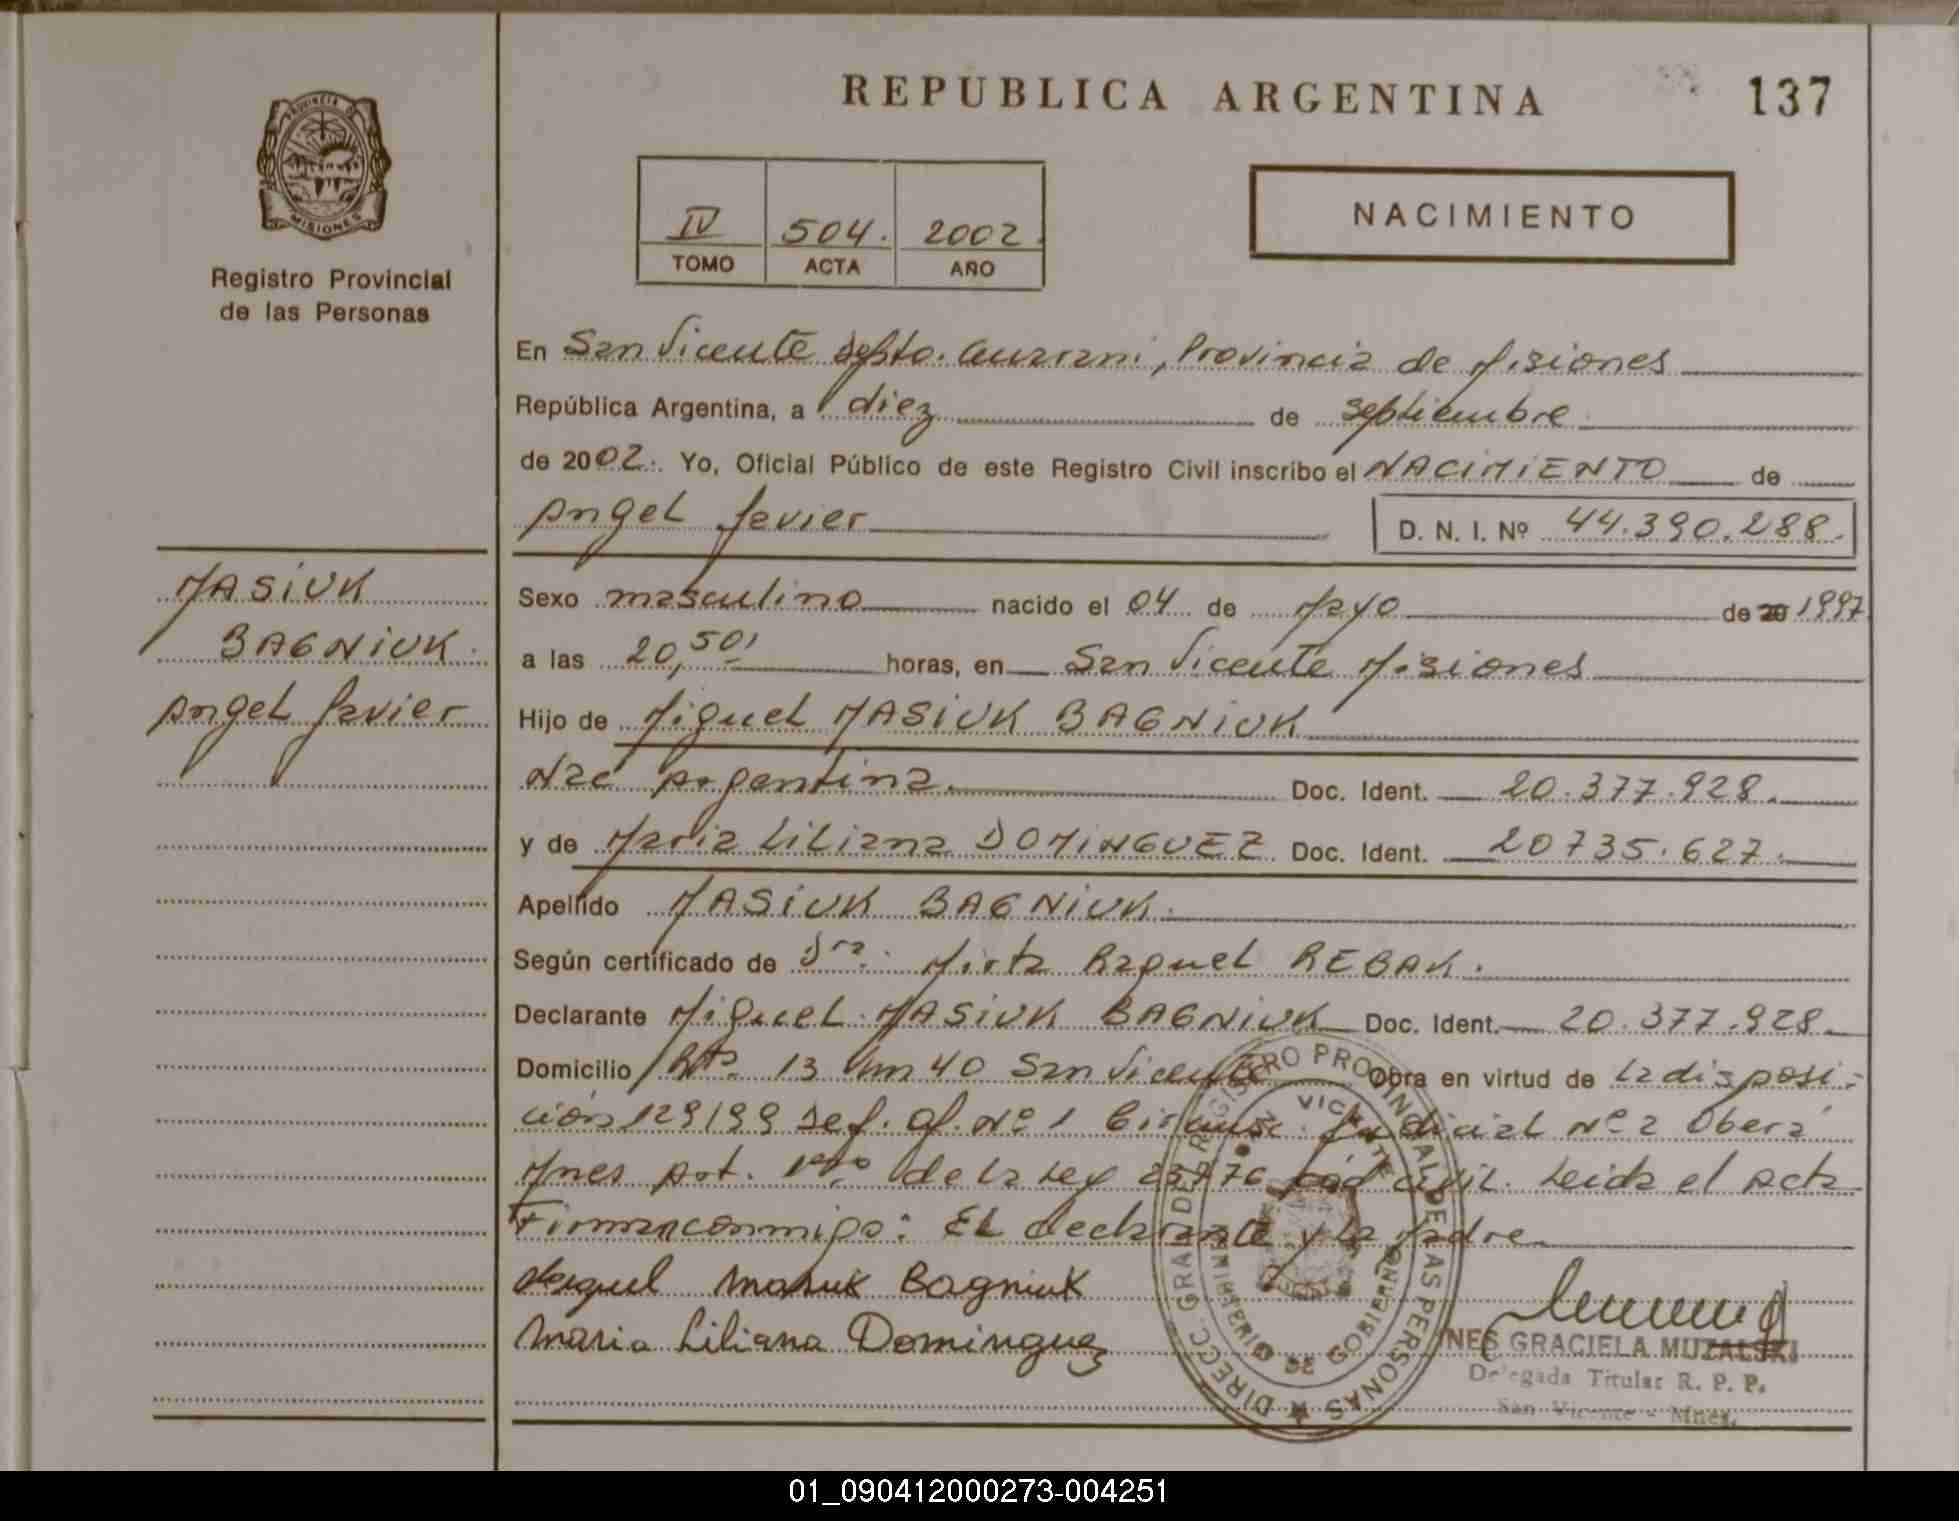 REPUBLICA ARGENTINA
137
PROVINCIA DE
MISIONES
Registro Provincial
de las Personas
IV 504. 2002.
TOMO ACTA AÑO
NACIMIENTO
En San Vicente Depto. Guarani, Provincia de Misiones
República Argentina, a diez de septiembre
de 2002. Yo, Oficial Público de este Registro Civil inscribo el NACIMIENTO de
Angel Javier
D. N. I. Nº 44.390.288.
MASIUK
BAGNIUK.
Angel Javier
Sexo masculino nacido el 04 de Mayo de 20 1997
a las 20,50' horas, en San Vicente Misiones
Hijo de Miguel MASIUK BAGNIUK
Nac Argentina. Doc. Ident. 20.377.928.
y de Maria Liliana DOMINGUEZ Doc. Ident. 20735.627.
Apellido MASIUK BAGNIUK.
Según certificado de Dra. Mirta Raquel REBAK.
Declarante Miguel MASIUK BAGNIUK Doc. Ident. 20.377.928
Domicilio Rta. 13 Km 40 San Vicente Obra en virtud de La disposi-
ción 129/99 Def. Of. Nº 1 Circunsc. Judicial Nº 2 Oberá
Mnes Art. 1ro de la Ley 23776 Cód Civil. Leida el Acta
Firman conmigo: EL declarante y La Madre
Miguel Masiuk Bagniuk
Maria Liliana Dominguez
DIRECC. GRAL DEL REGISTRO PROVINCIAL DE LAS PERSONAS
SAN VICENTE
MINISTERIO DE GOBIERNO
INES GRACIELA MUZALSKI
Delegada Titular R. P. P.
San Vicente - Mnes.
01_090412000273-004251